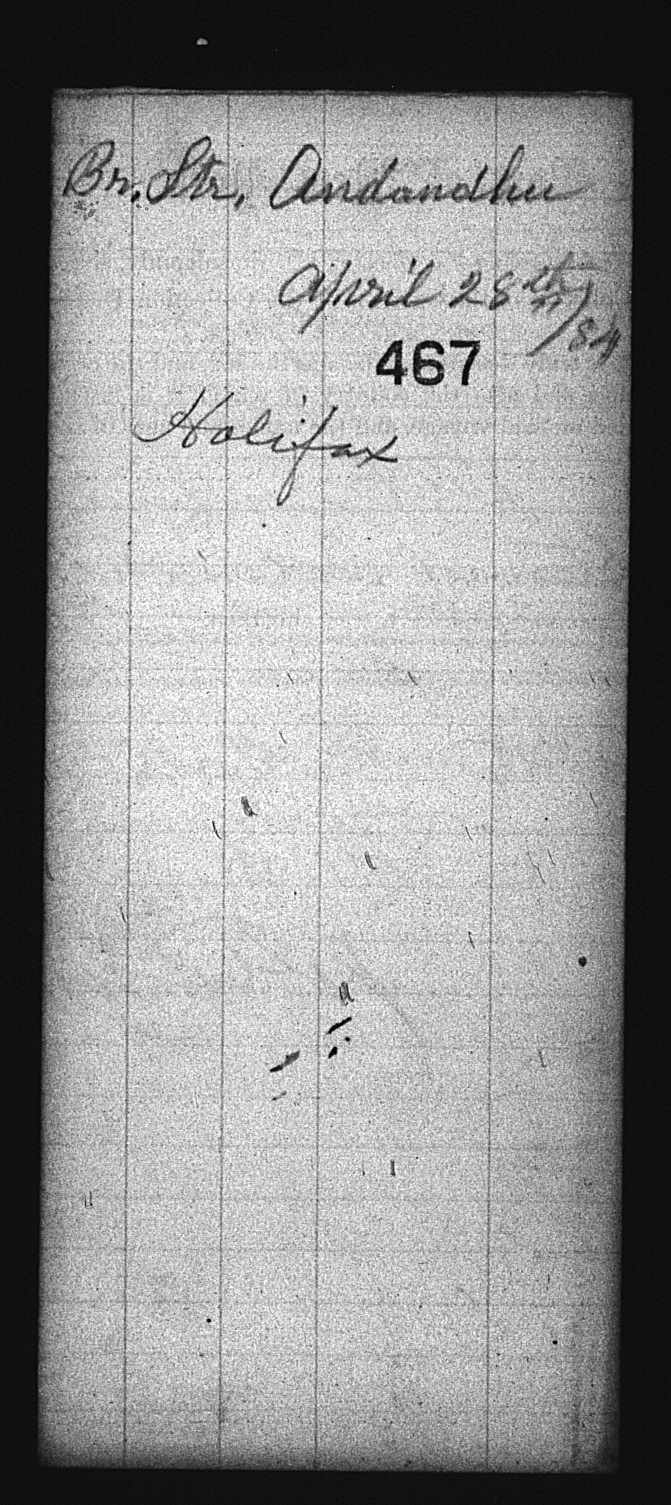 Br. Str. Andandhu
April 28th/84
467
Halifax